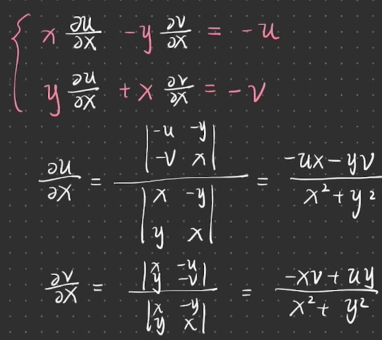 { x ∂u/∂x - y ∂v/∂x = -u
y ∂u/∂x + x ∂v/∂x = -v
∂u/∂x = |-u -y; -v x| / |x -y; y x| = (-ux - yv) / (x² + y²)
∂v/∂x = |x -u; y -v| / |x -y; y x| = (-xv + uy) / (x² + y²)